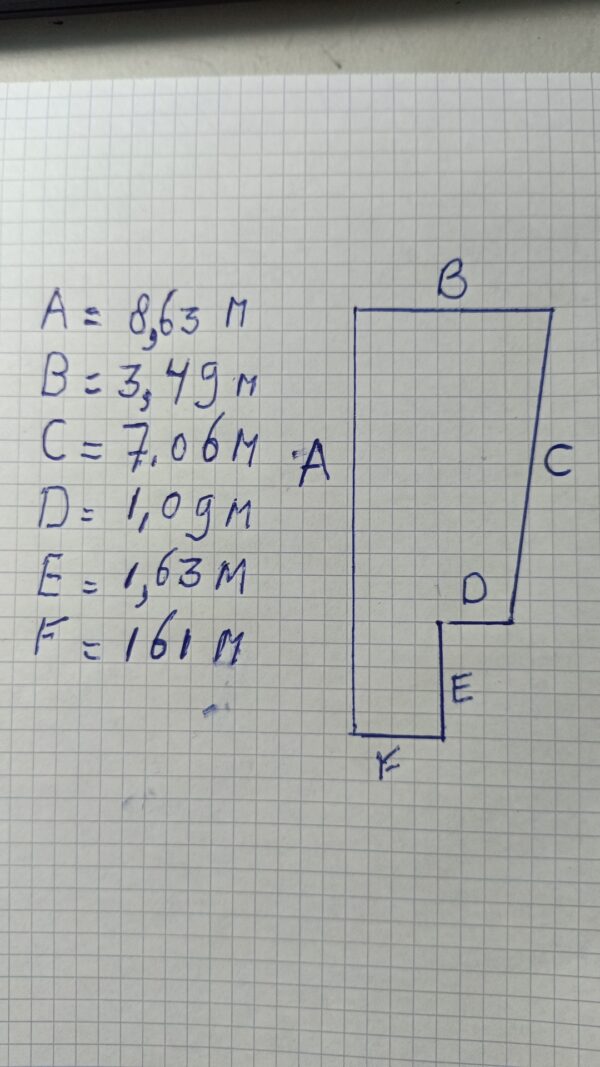 A = 8,63 м
B = 3,49 м
C = 7.06 м
D = 1,09 м
E = 1,63 м
F = 161 м
B
A
C
D
E
F